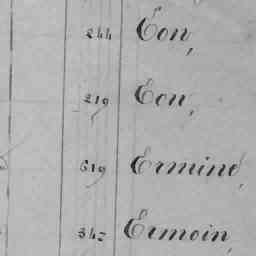 244 Eon,
219 Eon,
619 Erminé,
Ermoin,